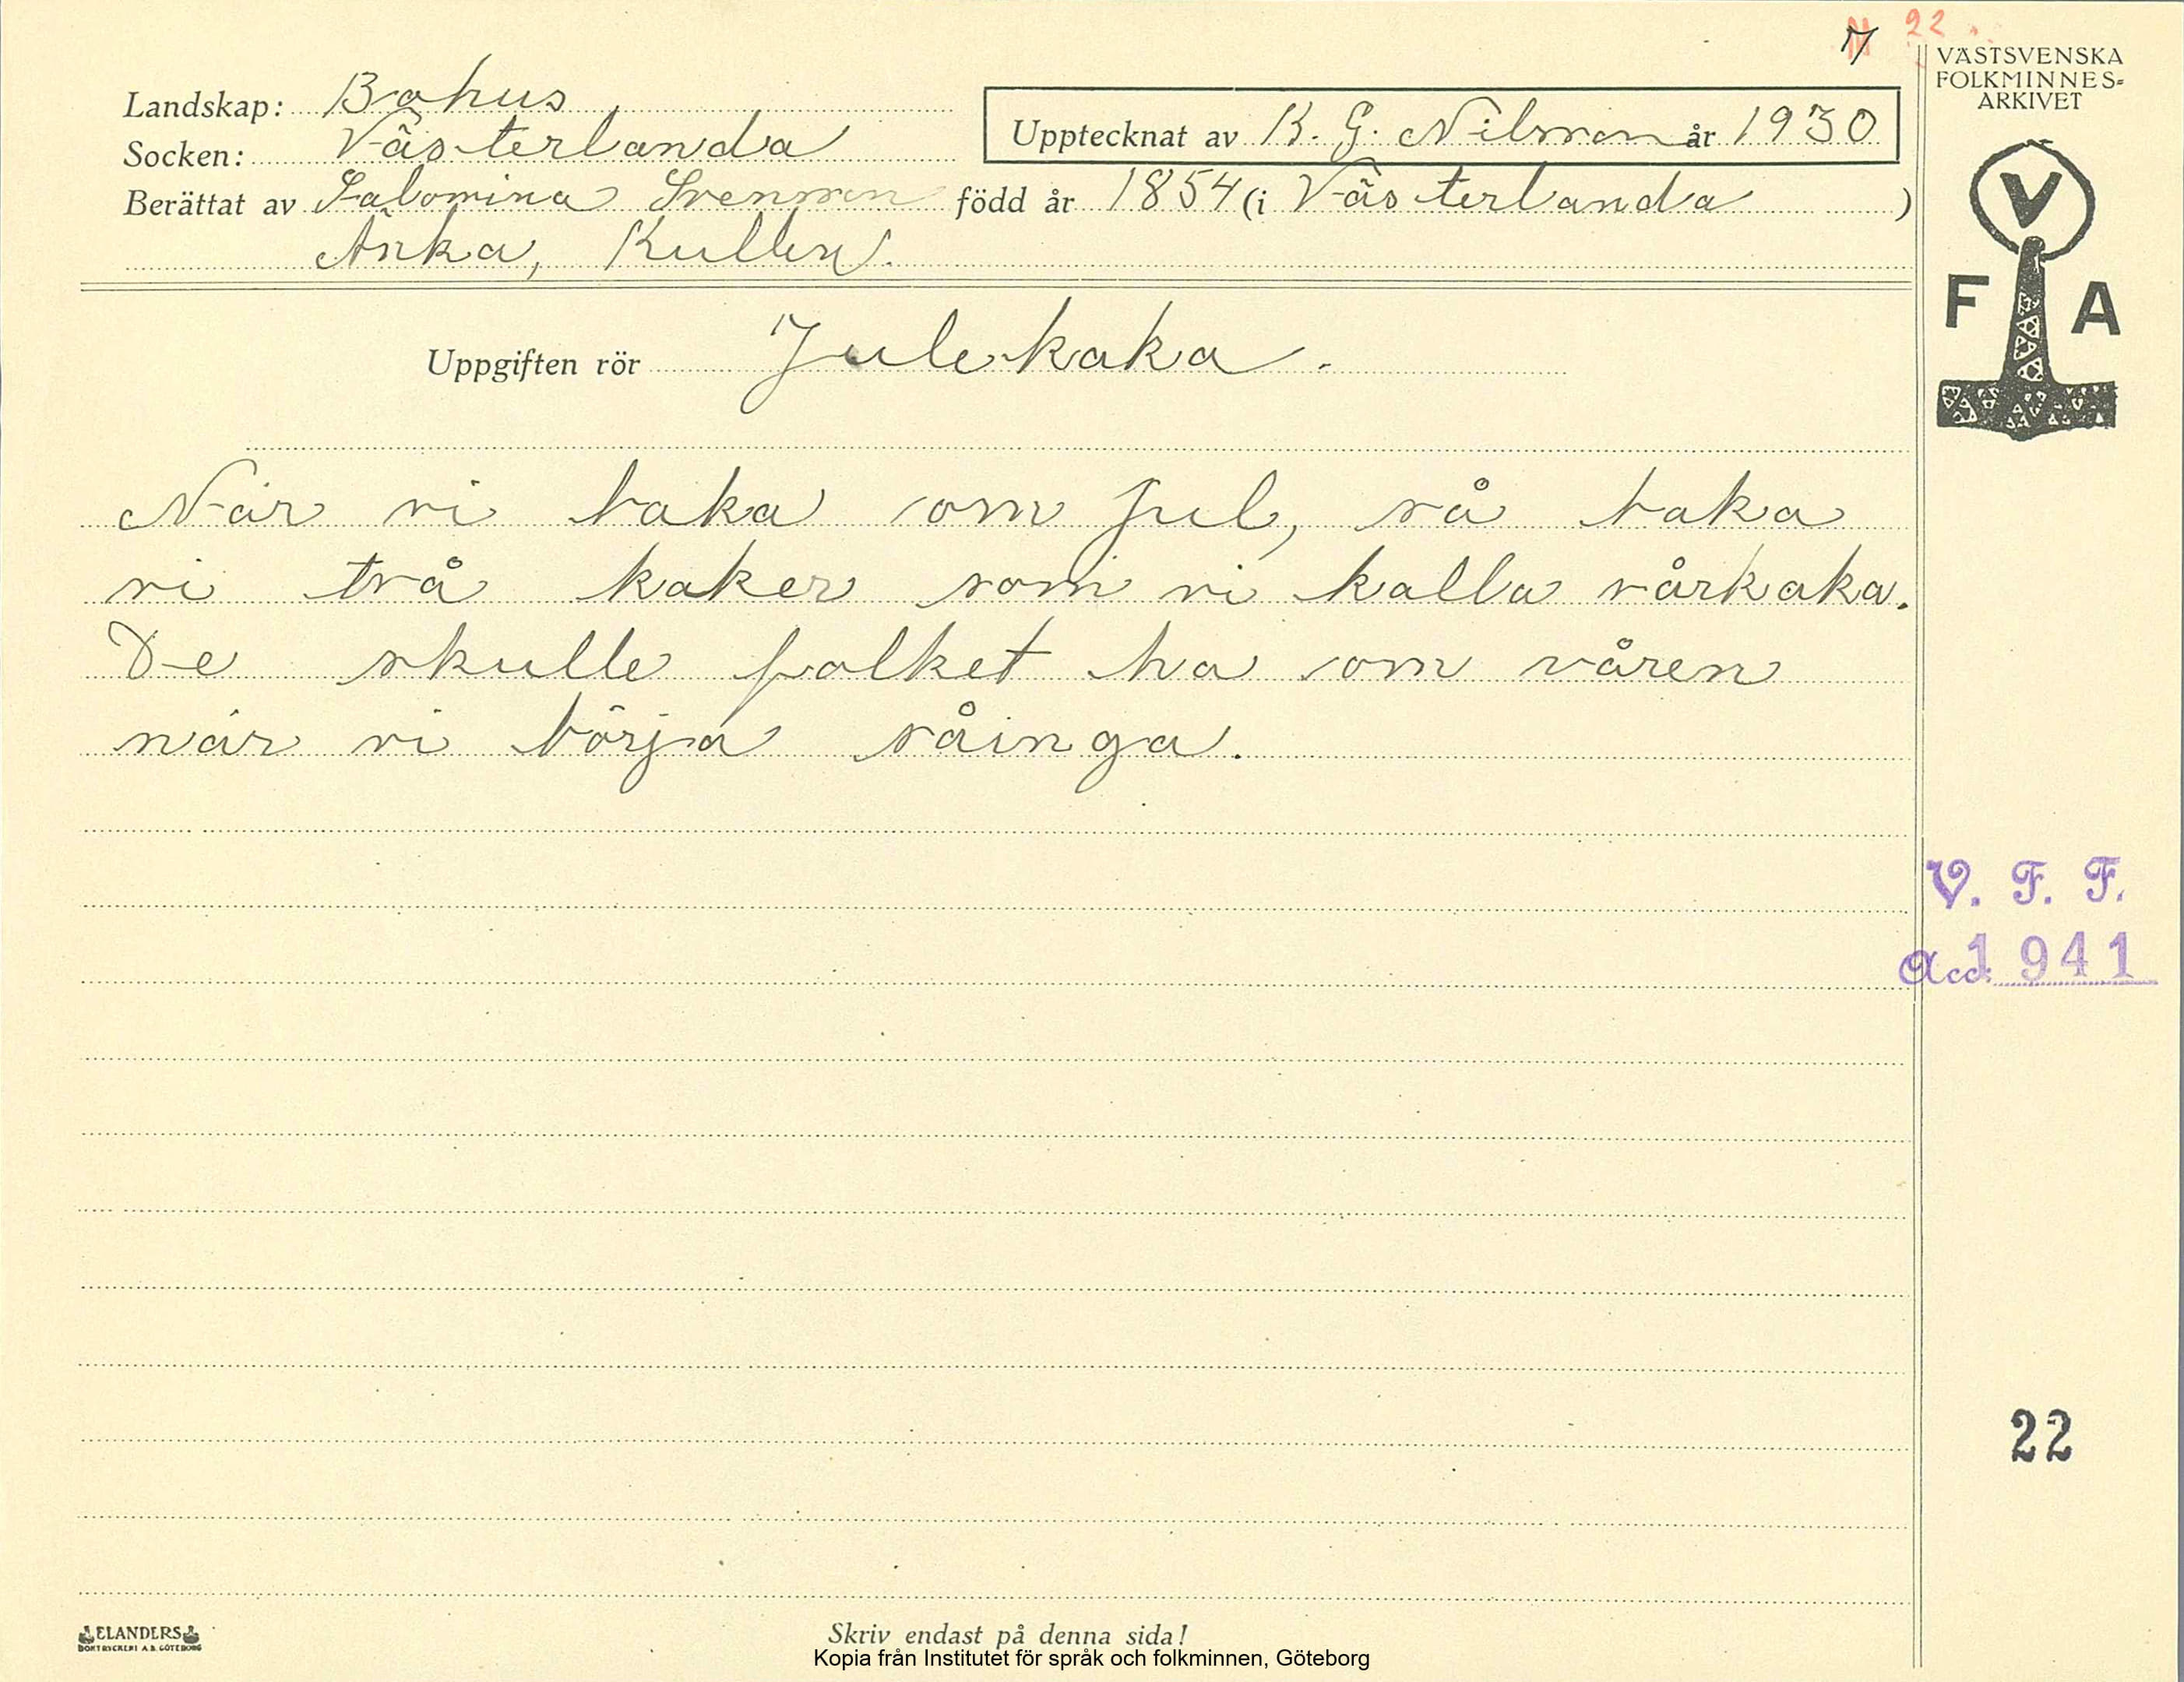 22
7
VÄSTSVENSKA
FOLKMINNES=
ARKIVET
Landskap: Bohus
Socken: Västerlanda
Upptecknat av K. G. Nilsson år 1930
Berättat av Salomina Svensson född år 1854 (i Västerlanda )
Änka, Kullen.
V
F A
Uppgiften rör Julekaka.
När vi baka om Jul, så baka
vi två kaker som vi kalla vårkaka.
De skulle folket ha om våren
när vi börja såinga.
V. F. F.
Acc. 1941
22
ELANDERS
BOKTRYCKERI A.B. GÖTEBORG
Skriv endast på denna sida!
Kopia från Institutet för språk och folkminnen, Göteborg